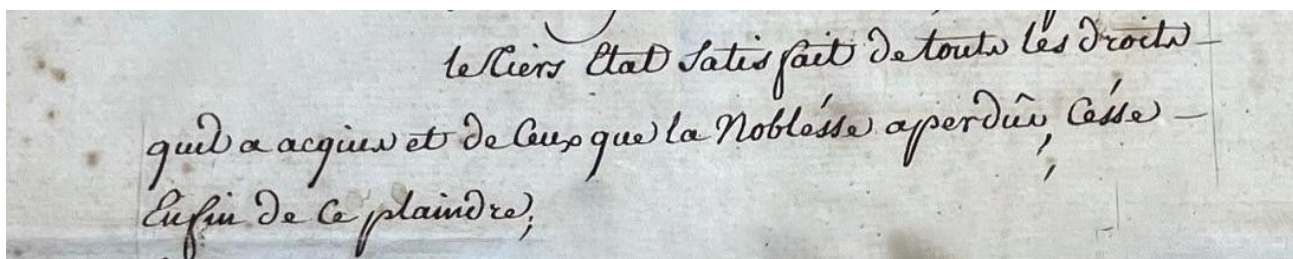 le tiers Etat Satisfait de touts lés droits –
quil a acquis et de Ceux que la Noblésse a perdûs, Césse –
Enfin de Ce plaindre;